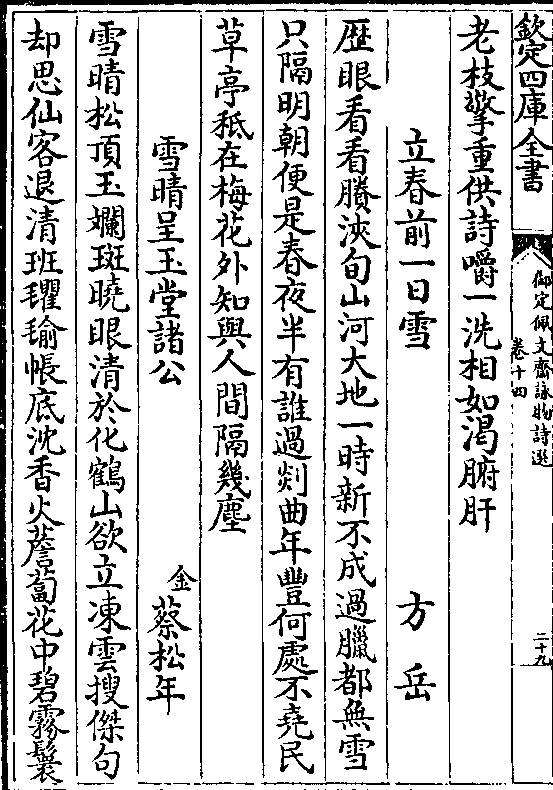 欽定四庫全書
御定佩文齋詠物詩選
卷十四
二十九
老枝擎重供詩嚼一洗相如渴腑肝
立春前一日雪
方岳
歴眼看看賸浹旬山河大地一時新不成過臘都無雪
只隔明朝便是春夜半有誰過剡曲年豐何處不堯民
草亭秖在梅花外知與人間隔幾塵
雪晴呈玉堂諸公
金
蔡松年
雪晴松頂玉斕斑曉眼清於化鶴山欲立凍雲搜傑句
却思仙客退清班氍毹帳底沈香火薝蔔花中碧霧鬟